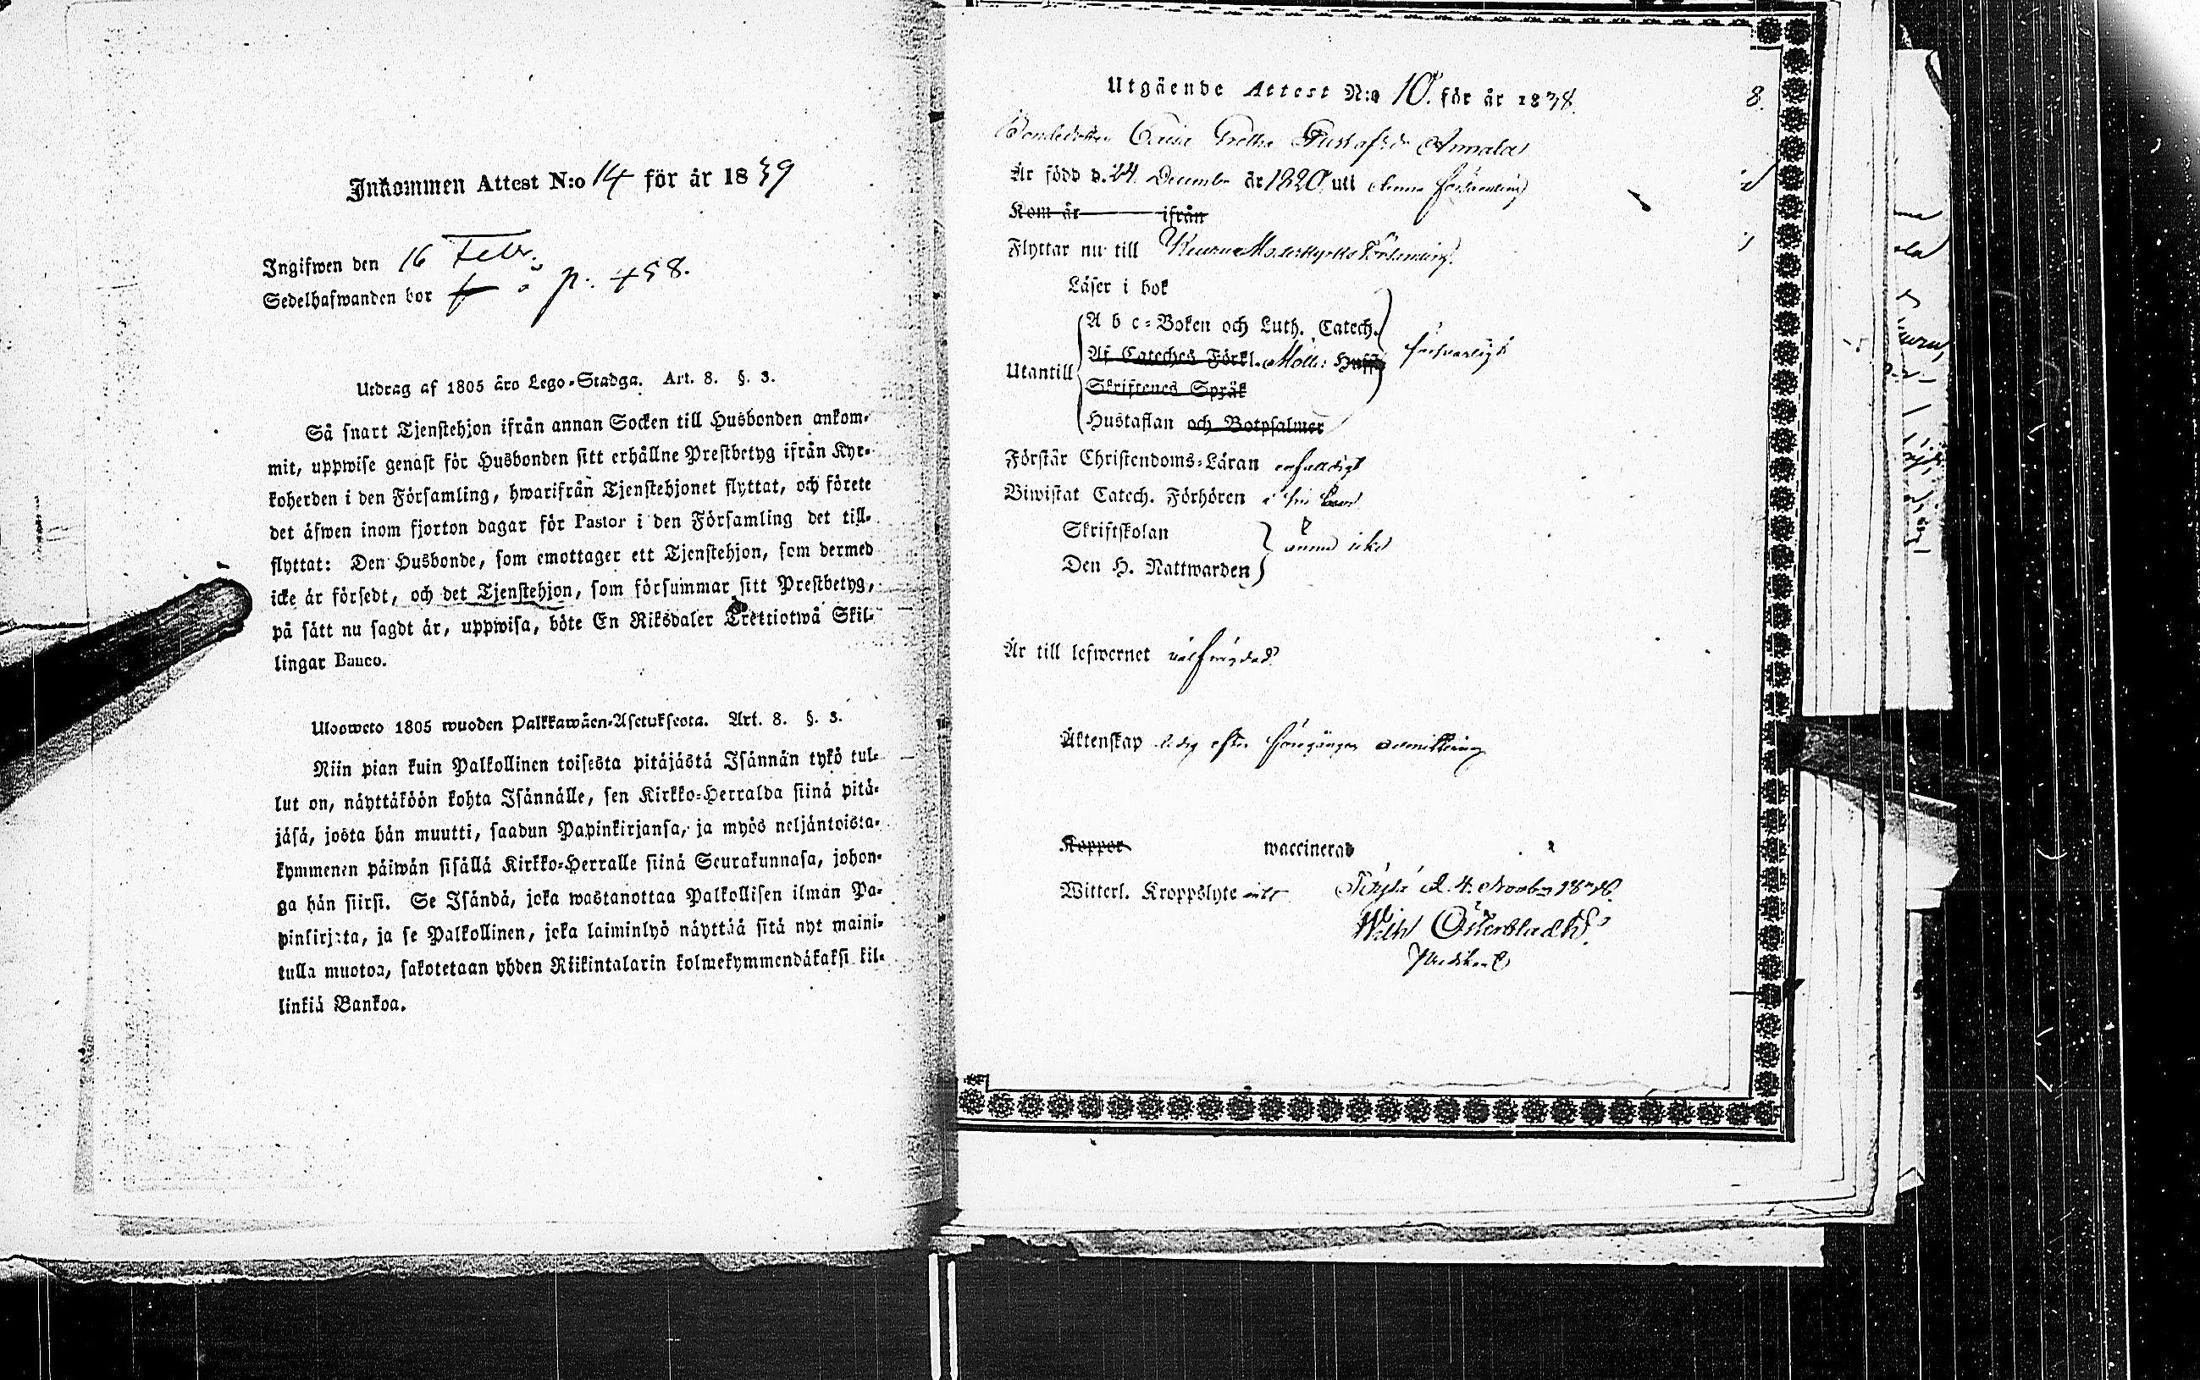 Inkommen Attest N:o 14 för år 1839
Ingifwen den 16 Febr.
Sedelhafwanden bor p. 458.
Utdrag af 1805 års Lego-Stadga. Art. 8. §. 3.
Så snart Tjenstehjon ifrån annan Socken till Husbonden ankom-
mit, uppwise genast för Husbonden sitt erhållne Prestbetyg ifrån Kyr-
koherden i den Församling, hwarifrån Tjenstehjonet flyttat, och förete
det äfwen inom fjorton dagar för Pastor i den Församling det till-
flyttat: Den Husbonde, som emottager ett Tjenstehjon, som dermed
icke är försedt, och det Tjenstehjon, som försummar sitt Prestbetyg,
på sätt nu sagdt är, uppwisa, böte En Riksdaler Trettiotwå Skil-
lingar Banco.
Ulosweto 1805 wuoden Palkkawäen-Asetuksesta. Art. 8. §. 3.
Niin pian kuin Palkollinen toisesta pitäjästä Isännän tykö tul-
lut on, näyttäköön kohta Isännälle, sen Kirkko-Herralda siinä pitä-
jäsä, josta hän muutti, saadun Papinkirjansa, ja myös neljäntoista-
kymmenen päiwän sisällä Kirkko-Herralle siinä Seurakunnasa, johon-
ga hän siirsi. Se Isändä, joka wastanottaa Palkollisen ilman Pa-
pinkirjata, ja se Palkollinen, joka laiminlyö näyttää sitä nyt maini-
tulla muotoa, sakotetaan yhden Riikintalarin kolmekymmendäkaksi kil-
linkiä Bankoa.
Utgående Attest N:o 10. för år 1838.
8.
Bondedottren Caisa Gretha Gustafsdr Annala
Är född d. 24. December år 1820 uti denna församling
Kom år ifrån
Flyttar nu till Moderkyrko Församling.
Läser i bok
A b c-Boken och Luth. Catech.
Af Cateches Förkl. Moll: Huff
försvarligt
Utantill
Skriftenes Språk
Hustaflan och Botpsalmer
Förstår Christendoms-Läran enfaldigt
Biwistat Catech. Förhören
Skriftskolan
ännu icke
Den H. Nattwarden
Är till lefwernet välfrägdad.
Äktenskap ledig efter föregången
Koppor waccinerad
Witterl. Kroppslyte intet
d. 4. Novbr 1838.
Wilh Österbladh
Predikant